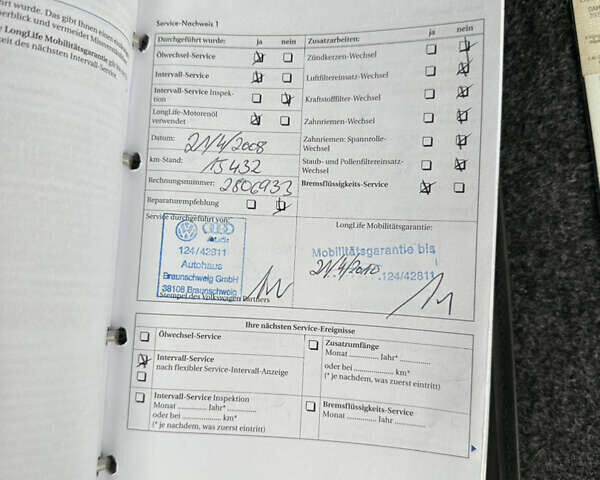 wurde. Das gibt Ihnen einen
erblick und vermeidet
LongLife Mobilitätsgarantie
eit des nächsten Intervall-Service
Service-Nachweis 1
Durchgeführt wurde: ja nein
Ölwechsel-Service
Intervall-Service
Intervall-Service Inspek-
tion
LongLife-Motorenöl
verwendet
Datum: 21/4/2008
km-Stand: 15432
Rechnungsnummer: 2806933
Reparaturempfehlung
Zusatzarbeiten: ja nein
Zündkerzen-Wechsel
Luftfiltereinsatz-Wechsel
Kraftstofffilter-Wechsel
Zahnriemen-Wechsel
Zahnriemen: Spannrolle-
Wechsel
Staub- und Pollenfiltereinsatz-
Wechsel
Bremsflüssigkeits-Service
Service durchgeführt von:
Audi
124/42811
Autohaus
Braunschweig GmbH
38108 Braunschweig
(Stempel des Volkswagen Partners
LongLife Mobilitätsgarantie:
Mobilitätsgarantie bis
21.4/2010
124/42811
Ihre nächsten Service-Ereignisse
Ölwechsel-Service
Intervall-Service
nach flexibler Service-Intervall-Anzeige
Intervall-Service Inspektion
Monat .............. Jahr* ..............
oder bei .................... km*
(* je nachdem, was zuerst eintritt)
Zusatzumfänge
Monat .............. Jahr* ..............
oder bei .................... km*
(* je nachdem, was zuerst eintritt)
Bremsflüssigkeits-Service
Monat .............. Jahr ..............